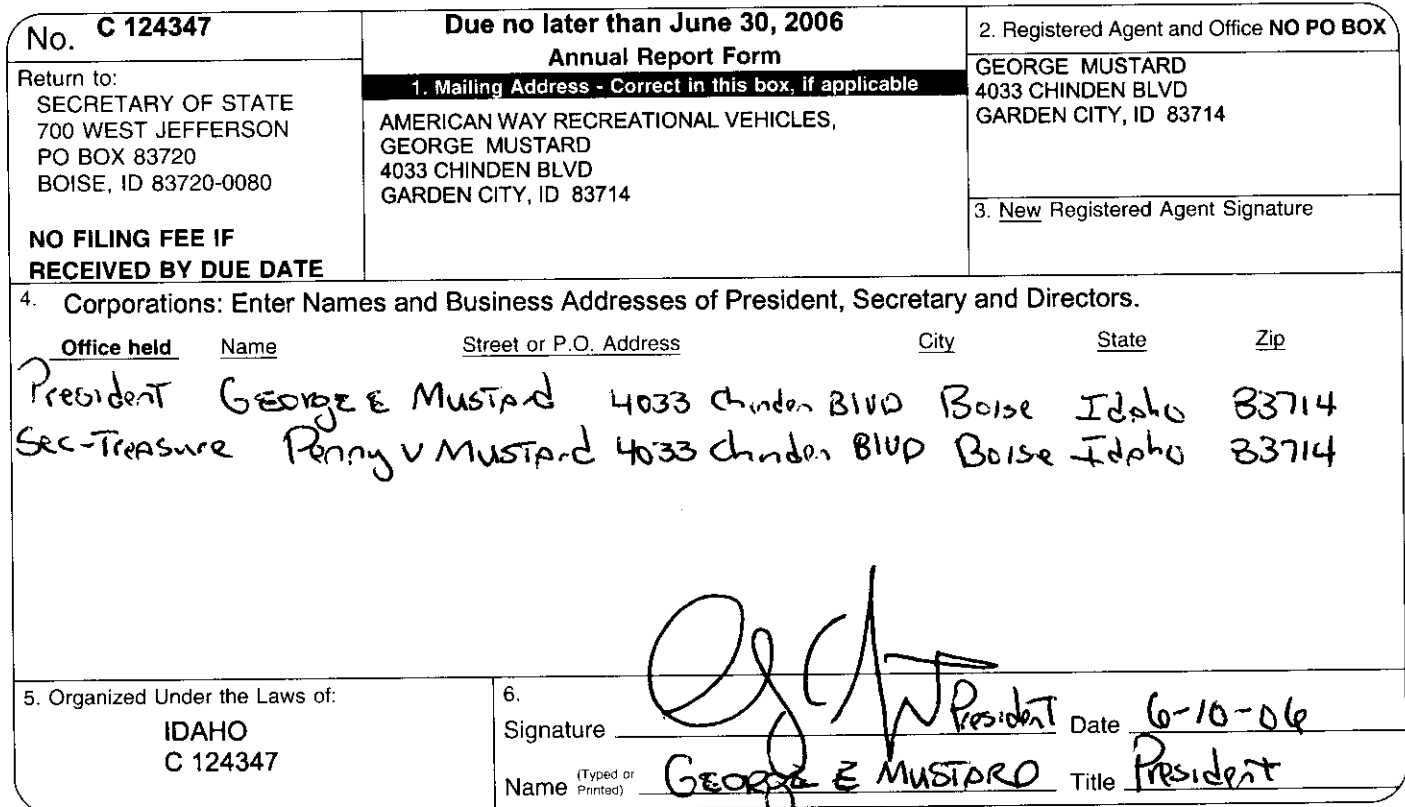 No. C 124347
Return to:
SECRETARY OF STATE
700 WEST JEFFERSON
PO BOX 83720
BOISE, ID 83720-0080
NO FILING FEE IF
RECEIVED BY DUE DATE
Due no later than June 30, 2006
Annual Report Form
1. Mailing Address - Correct in this box, if applicable
AMERICAN WAY RECREATIONAL VEHICLES,
GEORGE MUSTARD
4033 CHINDEN BLVD
GARDEN CITY, ID 83714
2. Registered Agent and Office NO PO BOX
GEORGE MUSTARD
4033 CHINDEN BLVD
GARDEN CITY, ID 83714
3. New Registered Agent Signature
4. Corporations: Enter Names and Business Addresses of President, Secretary and Directors.
Office held Name Street or P.O. Address City State Zip
President George E Mustard 4033 Chinden Blvd Boise Idaho 83714
Sec-Treasure Penny V Mustard 4033 Chinden Blvd Boise Idaho 83714
5. Organized Under the Laws of:
IDAHO
C 124347
6.
Signature President Date 6-10-06
Name (Typed or Printed) GEORGE E MUSTARD Title President